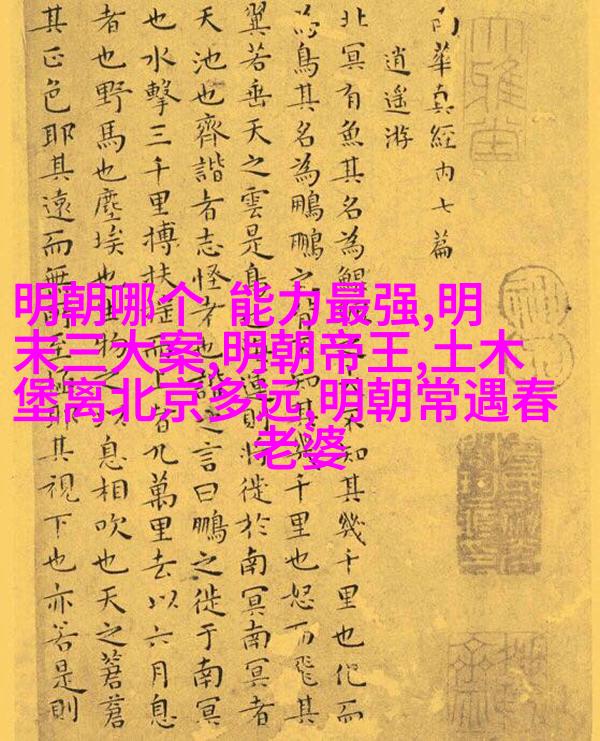 明朝哪个 能力最强,明
末三大案,明朝帝王,土木
堡离北京多远,明朝常遇春
老婆
南華真經内七篇
逍遥游
北冥有魚其名為鯤之大不知其幾千里也化而
為鳥其名為鵬鵬之背不知其幾千里也怒而飛其
翼若垂天之雲是鳥也運則將徙於南冥南冥者
天池也齊諧者志怪者也諧之言曰鵬之徙于南冥
也水擊三千里搏扶搖而上者九萬里去以六月息
者也野馬也塵埃也生物之以息相吹也天之蒼蒼
其正色耶其遠而無所至極耶其視下也亦若是則